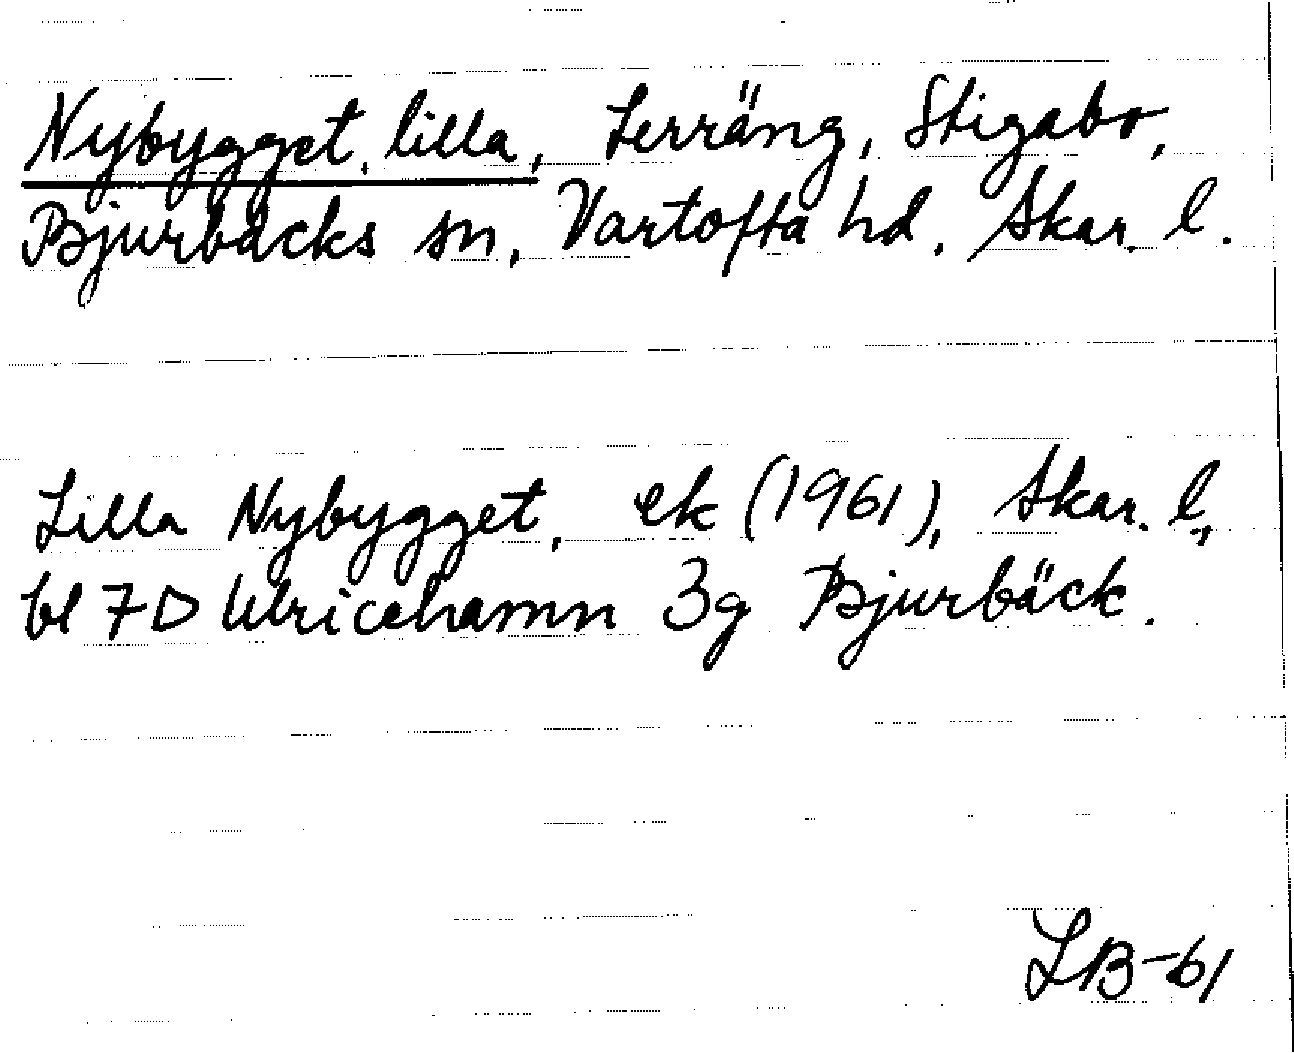 Nybygget, lilla, Lerräng, Stigabo,
Bjurbäcks sn, Vartofta hd, Skar. l.
Lilla Nybygget, ek (1961), Skar. l,
bl 7D Ulricehamn 3g Bjurbäck.
LB-61